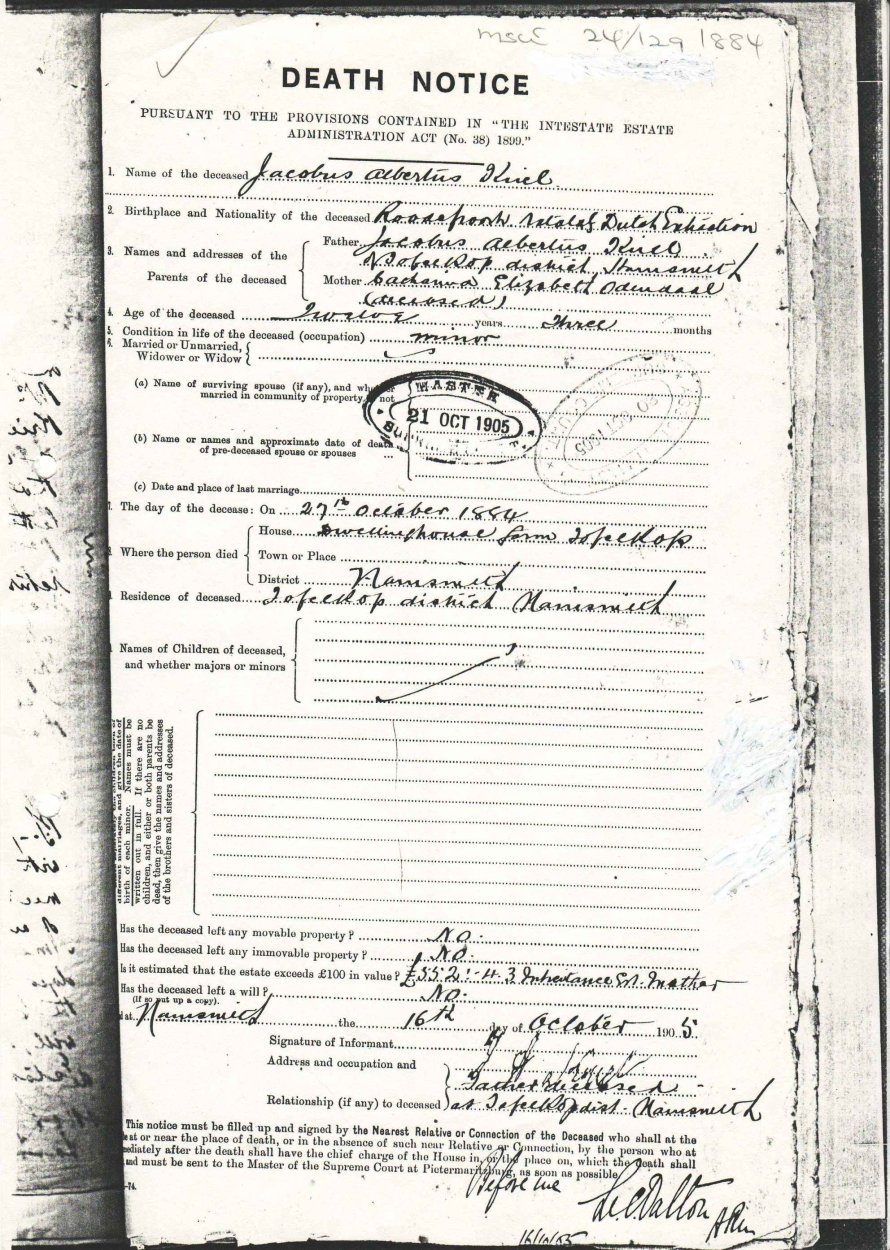 msce 24/129 1884
DEATH NOTICE
PURSUANT TO THE PROVISIONS CONTAINED IN "THE INTESTATE ESTATE
ADMINISTRATION ACT (No. 38) 1899."
1. Name of the deceased Jacobus Albertus Kriel
2. Birthplace and Nationality of the deceased Natal & Dutch Extraction
3. Names and addresses of the Parents of the deceased
Father Jacobus Albertus Kriel
Tafelkop district Harrismith
Mother Elizabeth Odendaal
(deceased)
4. Age of the deceased Twelve years Three months
5. Condition in life of the deceased (occupation) minor
6. Married or Unmarried,
Widower or Widow
(a) Name of surviving spouse (if any), and whether
married in community of property, not
MASTER
21 OCT 1905
(b) Name or names and approximate date of death
of pre-deceased spouse or spouses
(c) Date and place of last marriage
The day of the decease: On 27th October 1884
Where the person died
House Dwellinghouse farm Tafelkop
Town or Place
District Harrismith
Residence of deceased Tafelkop district Harrismith
Names of Children of deceased,
and whether majors or minors
different marriages, and give the date of
birth of each minor. Names must be
written out in full. If there are no
children, and either or both parents be
dead, then give the names and addresses
of the brothers and sisters of deceased.
Has the deceased left any movable property? No.
Has the deceased left any immovable property? No.
Is it estimated that the estate exceeds £100 in value? £552:-4.3 Inheritance Est. Mother
Has the deceased left a will? No.
(If so put up a copy).
at Harrismith the 16th day of October 1905
Signature of Informant
Address and occupation and
Father deceased
Relationship (if any) to deceased at Tafelkop dist. Harrismith
This notice must be filled up and signed by the Nearest Relative or Connection of the Deceased who shall at the
at or near the place of death, or in the absence of such near Relative or Connection, by the person who at
mediately after the death shall have the chief charge of the House in, or the place on, which the death shall
and must be sent to the Master of the Supreme Court at Pietermaritzburg, as soon as possible
—74.
Before me
16/10/05